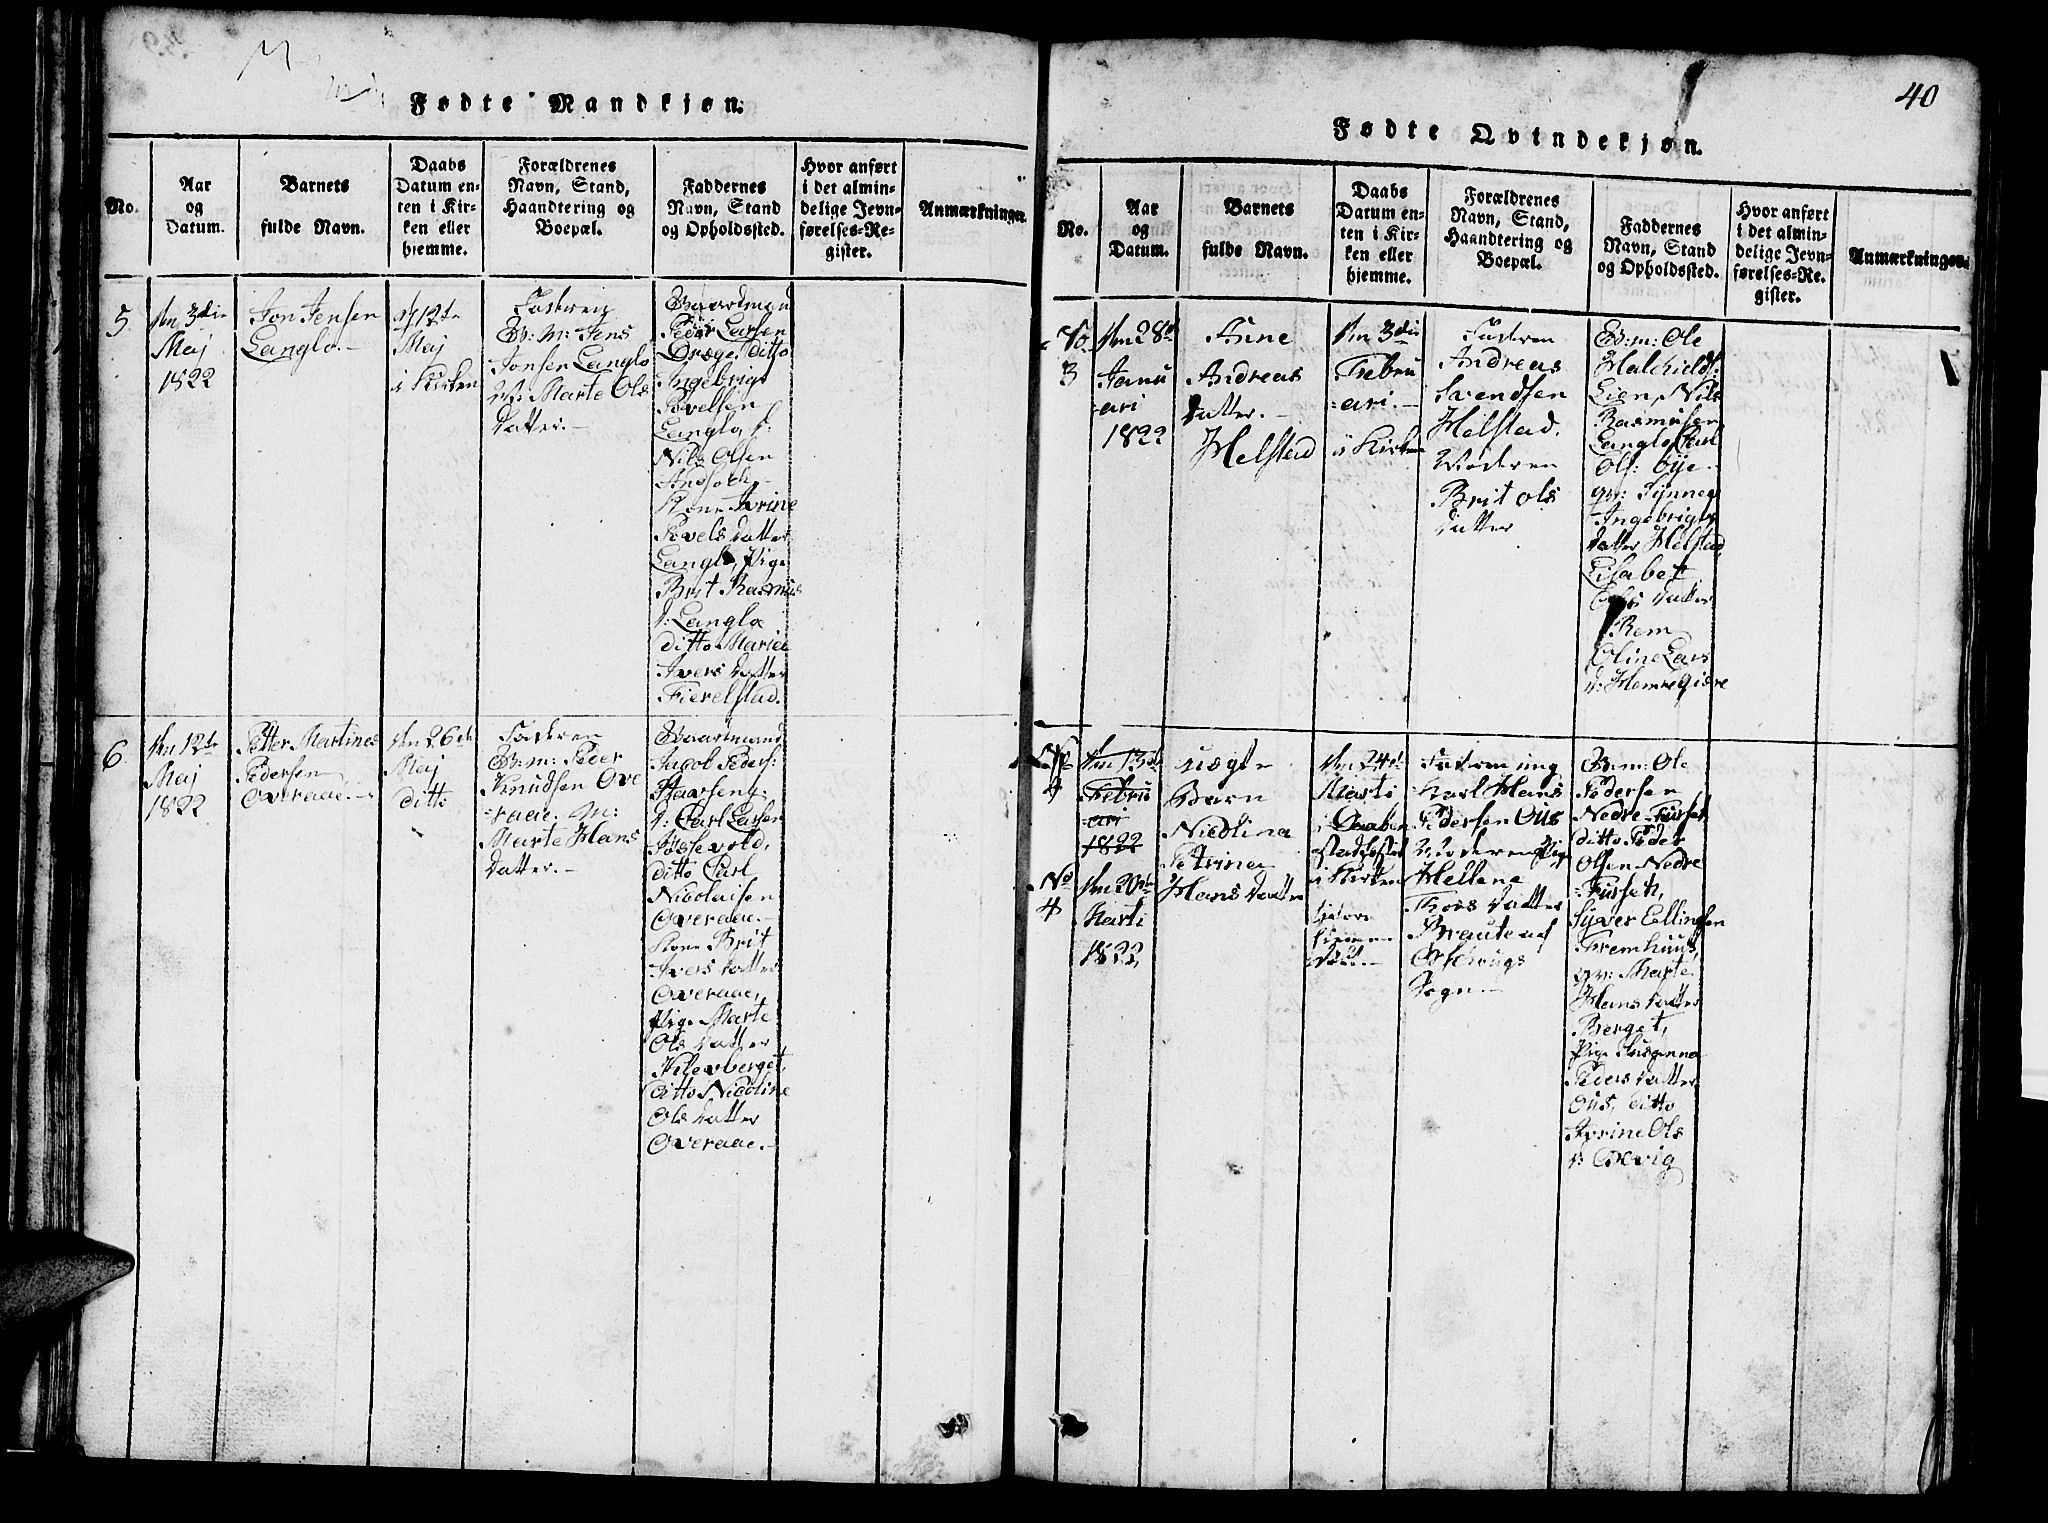 Fødte Mandkjøn.
No.
Aar
og
Datum.
Barnets
fulde Navn.
Daabs
Datum en-
ten i Kir-
ken eller
hjemme.
Forældrenes
Navn, Stand,
Haandtering og
Boepæl.
Faddernes
Navn, Stand
og Opholdssted.
Hvor anført
i det almin-
delige Jevn-
førelses-Re-
gister.
Anmærkninger.
5
den 3die
Maj
1822
Jon Jensen
Langlo.-
d 12te
Maj
i Kirken
Faderen
B: M: Jens
Jonsen Langlo
M: Marte Ols
datter.-
Gaardmand
Peder Larsen
Drage, Ditto
Ingebrigt
Povelsen
Langlo,
Nils Olsen
Kone Iverine
Povels datter
Langlo, Pige
Brit Rasmus
d: Langlo
ditto Marie
Ivers datter
Fierelstad.
6
den 12te
Maj
1822
Petter Martines
Pedersen
Overaae.-
den 26de
Maj
ditto
Faderen
B: m: Peder
Knudsen Ove
=raae. M:
Marte Hans
datter.-
Gaardmand
Jacob Peders:
Stavseng:
d: Carl Larsen
Jossevold,
ditto Carl
Nicolaisen
Overaae.-
Kone Brit
Ivers datter
Overaae,
Pige Marte
Ols datter
Hilevberget,
ditto Nicoline
Ols datter
Overaae.-
40
Fødte Qvindekjøn.
No.
Aar
og
Datum.
Barnets
fulde Navn.
Daabs
Datum en-
ten i Kir-
ken eller
hjemme.
Forældrenes
Navn, Stand,
Haandtering og
Boepæl.
Faddernes
Navn, Stand
og Opholdssted.
Hvor anført
i det almin-
delige Jevn-
førelses-Re-
gister.
Anmærkninger.
No
3
den 28de
Janu
=ari
1822
Anne
Andreas
datter.-
Helstad
den 3die
Febru
=ari.-
i Kirken
Faderen
Andreas
Svendsen
Helstad.
Moderen
Brit Ols
datter
B: m: Ole
Halchilds:
Lien, Nils
Rasmusen
Langlo Carl
Ols: Øye-
qv: Synneg
Ingebrigts
datter Helstad
Elisabet
Ols datter
Rem
Oline Lars
d: Hemregisre
No
4
den 13de
Febru
ari
1822
No
4
den 20de
Marti
1822
uægte
Barn
Nicolina
Petrina
Hans datter
den 24de
Marti
i Daaben
stadfæstet
i Kirken
Faderen ung
Karl Hans
Pedersen Ous
Moderen Pig
Hellene
Thors datter
Braute af
Ørschougs
Sogn.-
B: m: Ole
Pedersen
Nedre Furset
ditto Peder
Olsen Nedre
=Furseth,
Syver Ellingsen
Fremhuus,
qv: Marte
Hans datter
Berget,
Pige Susanna
Peders datter
Ous, ditto
Iverine Ols
d: Oxvig